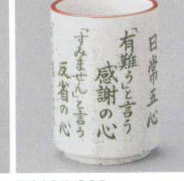 日常五心
「有難う」と言う
感謝の心
「すみません」と言う
反省の心